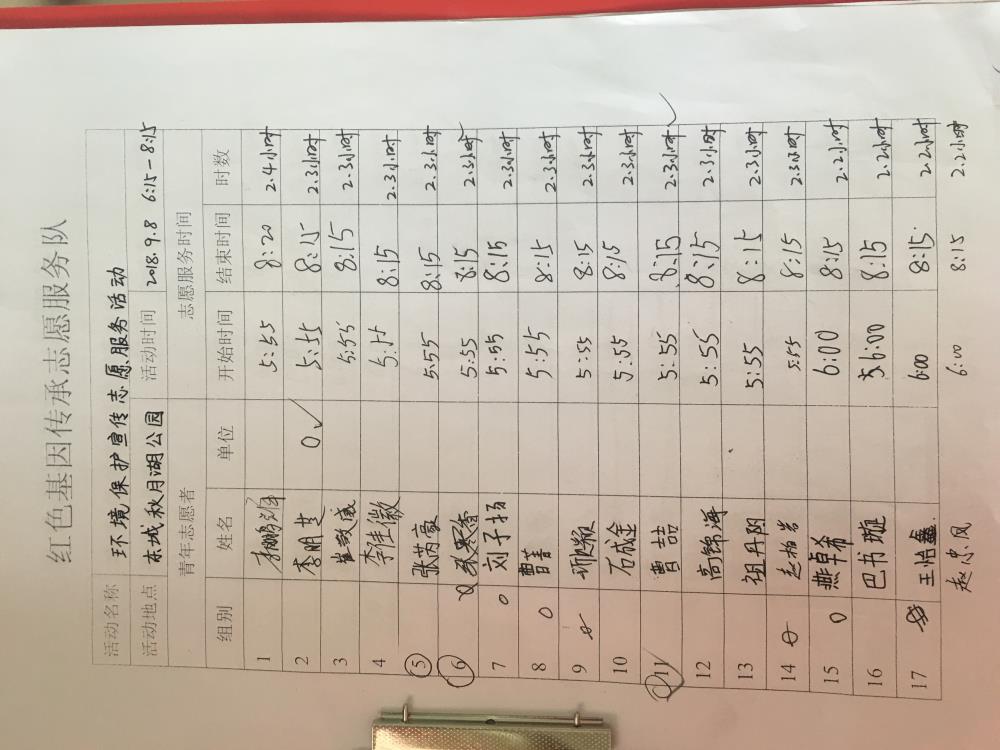 红色基因传承志愿服务队
活动名称 环境保护宣传志愿服务活动
活动地点 东城秋月湖公园 活动时间 2018.9.8 6:15-8:15
青年志愿者 志愿服务时间
组别 姓名 单位 开始时间 结束时间 时数
1 李鹏 5:55 8:20 2.4小时
2 李明芝 0 5:55 8:15 2.3小时
3 崔致威 5:55 8:15 2.3小时
4 李佳徽 5:55 8:15 2.3小时
5 张芮豪 5:55 8:15 2.3小时
6 5:55 8:15 2.3小时
7 0 刘子扬 5:55 8:15 2.3小时
8 0 曹菁 5:55 8:15 2.3小时
9 5:55 8:15 2.3小时
10 石成金 5:55 8:15 2.3小时
11 曹喆 5:55 8:15 2.3小时
12 高锦海 5:55 8:15 2.3小时
13 祖丹阳 5:55 8:15 2.3小时
14 赵柏岩 5:55 8:15 2.3小时
15 0 燕卓希 6:00 8:15 2.2小时
16 巴书璇 6:00 8:15 2.2小时
17 王怡鑫 6:00 8:15 2.2小时
赵忠凤 6:00 8:15 2.2小时